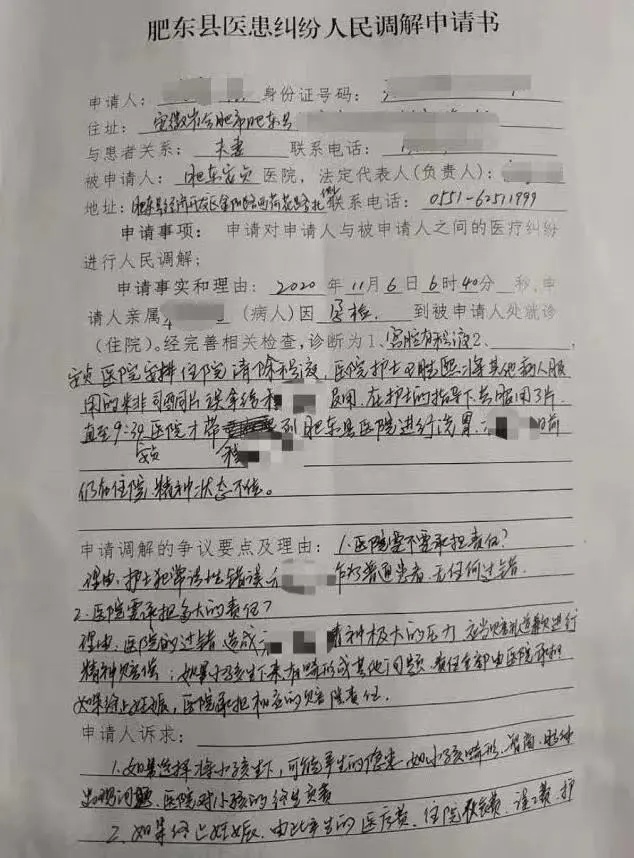 肥东县医患纠纷人民调解申请书
申请人： 身份证号码：
住址：安徽省合肥市肥东县
与患者关系：夫妻 联系电话：
被申请人：肥东安贞医院，法定代表人(负责人)：
地址：肥东县经济开发区 联系电话：0551-62511999
申请事项：申请对申请人与被申请人之间的医疗纠纷
进行人民调解；
申请事实和理由：2020年11月6日6时40分 秒，申
请人亲属 （病人）因孕检 到被申请人处就诊
（住院）。经完善相关检查，诊断为1、宫腔有积液2、
安贞医院安排住院清除积液，医院护士 将其他病人服
用的米非司酮片误拿给 服用，在护士的指导下共服用3片
直至9:30医院才带 到肥东县医院进行洗胃， 目前
安贞
仍在住院，精神状态不佳。
申请调解的争议要点及理由：1.医院需不需承担责任？
理由：护士犯 错误， 作为普通患者，无任何过错。
2.医院需承担多大的责任？
理由：医院的过错，造成 精神极大的压力，应当 进行
精神赔偿；如果小孩生下来有畸形或其他问题，责任全部由医院承担
如果终止妊娠，医院承担相应的赔偿责任。
申请人诉求：
1.如果选择将小孩生下，可能产生的隐患，如小孩畸形、智商、
出现问题，医院对小孩的终生负责
2.如果终止妊娠，由此产生的医疗费、住院 费、误工费、护